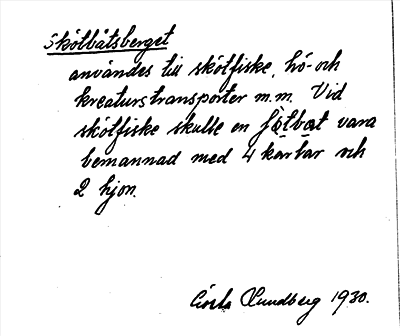 Skötbåtsberget
användes till skötfiske, hö- och
kreaturstransporter m.m. Vid
skötfiske skulle en fötbat vara
bemannad med 4 karlar och
2 hjon.
Gösta Lundberg 1930.